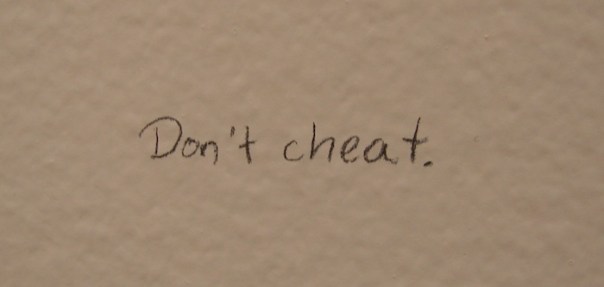 Don't cheat.